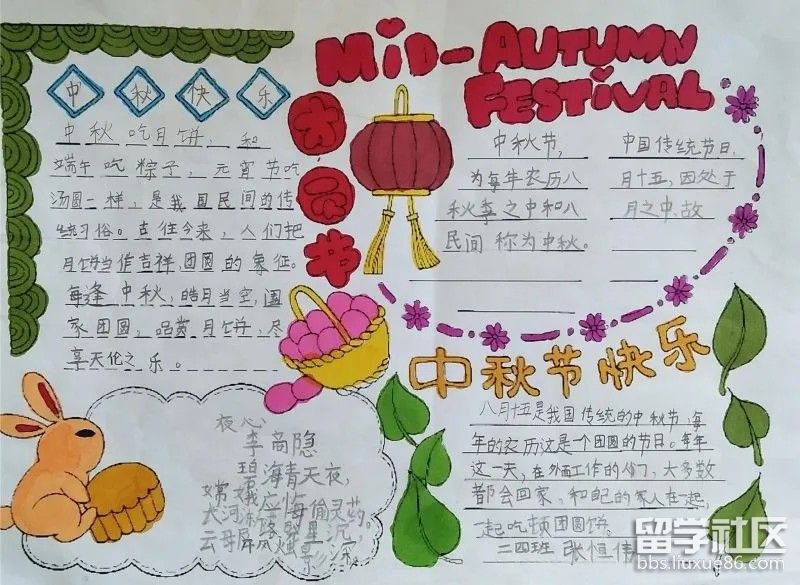 MiD-AUTUMN
FESTiVAL
中秋快乐
中秋吃月饼,和
端午吃粽子,元宵节吃
汤圆一样,是我国民间的传
统习俗。古往今来,人们把
月饼当作吉祥,团圆的象征。
每逢中秋,皓月当空,国
家团圆,品茗月饼,尽
享天伦之乐。
中秋节,
为每年农历八
秋季之中和八
民间称为中秋。
中国传统节日,
月十五,因处于
月之中,故
中秋节快乐
八月十五是我国传统的中秋节,每
年的农历这是个团圆的节日。每年
这一天,在外面工作的人们,大多数
都会回家,和自己的家人在一起,
一起吃顿团圆饼。
二四班 张恒
夜心
李商隐
海青天夜,
嫦娥应悔偷灵药。
云 屏风烛影深
留学社区
bbs.liuxue86.com